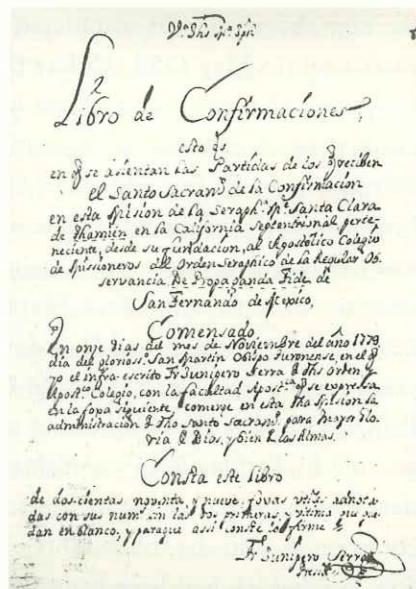 Libro de Confirmaciones,
esto es
en q̃ se asientan las Partidas de los q̃ reciben
el Santo Sacram.to de la Confirmacion
en esta Mission de la Seraph.ca M.e Santa Clara
de Thamien en la California Septentrional perte-
neciente, desde su fundacion, al Apostolico Colegio
de Missioneros del Orden Seraphico de la Regular Ob
servancia De Propaganda Fide de
San Fernando de Mexico,
Comensado
En onze dias del mes de Noviembre del año 1779
dia del glorioso San Martin Obispo Turonense, en el q̃
yo el infra-escrito Fr Junipero Serra
Apost.co Colegio, con la facultad Apost.ca q̃ se expresa
en la foxa siguiente, comenze en esta dha Mission la
administracion dho Santo Sacram.to para mayor Glo-
ria de Dios, y bien de las Almas.
Consta este libro
de doscientas noventa y nueve, foxas utiles adnota-
das con sus num.s sin las dos primeras, y ultima que
dan en blanco, y paraque assi conste lo firmé
Fr Junipero Serra
Presid.te